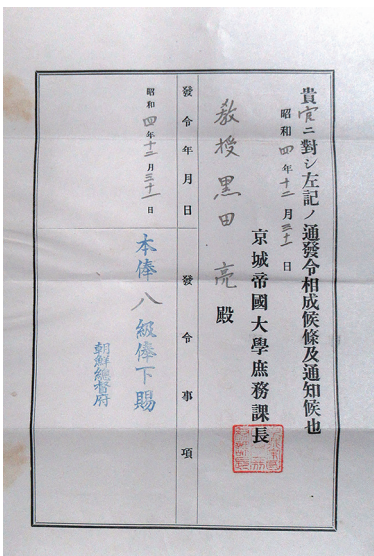 貴官ニ對シ左記ノ通發令相成候條及通知候也
昭和四年十二月三十一日
京城帝國大學庶務課長
教授 黒田亮殿
發令年月日 發令事項
昭和四年十二月三十一日 本俸八級俸下賜
朝鮮總督府